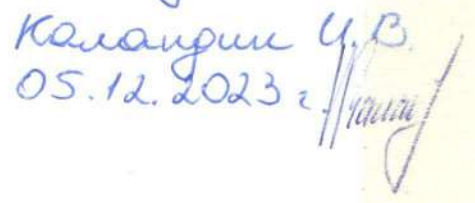 Каландин И.В.
05.12.2023 г.